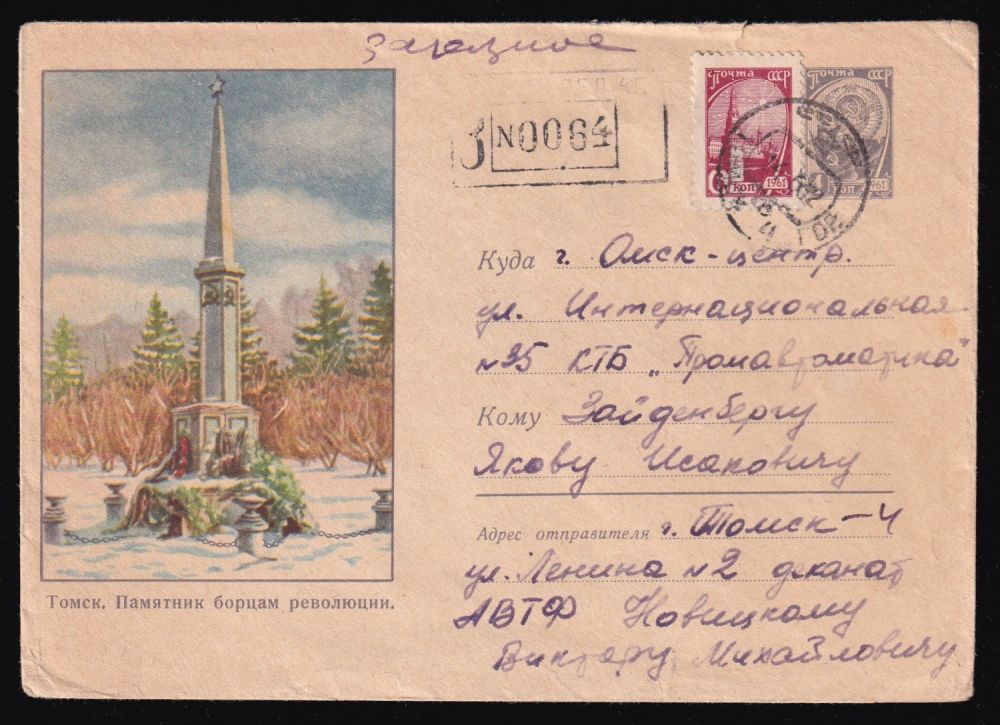 Заказное
З №0064
Почта СССР
6 коп 1961
Почта СССР
4 коп 1961
Куда г. Омск-центр.
ул. Интернациональная
№35 КТБ „Промавтоматика"
Кому Зайденбергу
Якову Исаковичу
Адрес отправителя г. Томск-4
ул. Ленина №2 деканат
АВТФ Новицкому
Виктору Михайловичу
Томск. Памятник борцам революции.